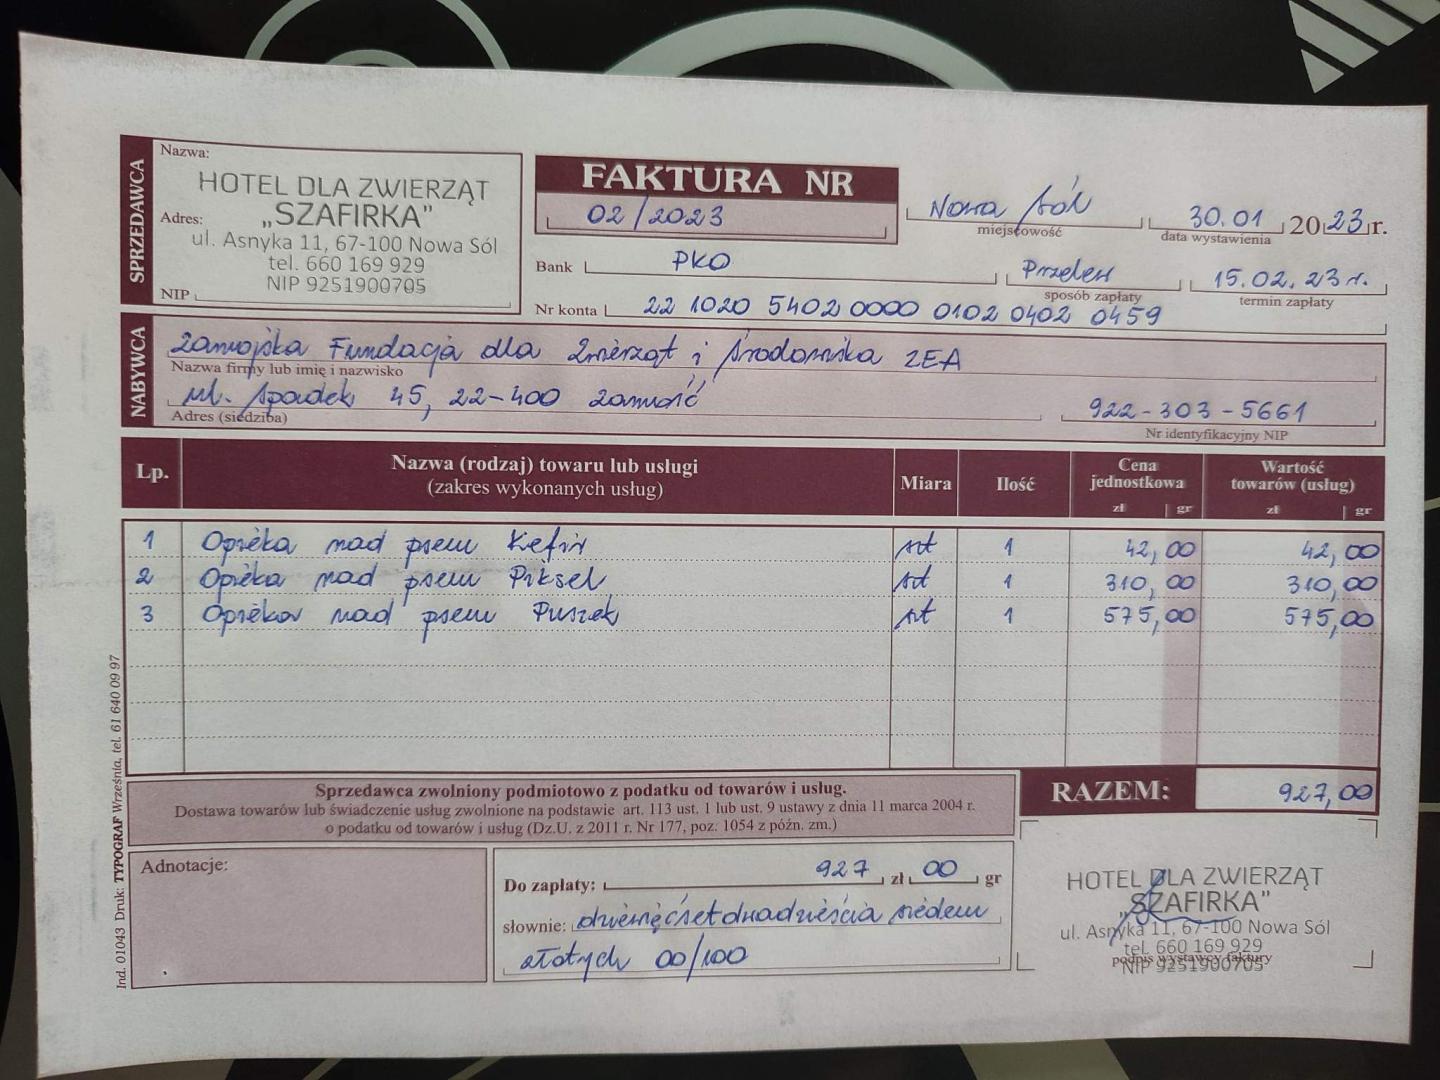 SPRZEDAWCA
Nazwa:
HOTEL DLA ZWIERZĄT
„SZAFIRKA”
Adres:
ul. Asnyka 11, 67-100 Nowa Sól
tel. 660 169 929
NIP 9251900705
NIP
FAKTURA NR
02/2023
Nowa Sól
miejscowość
30.01 2023 r.
data wystawienia
Bank PKO
Przelew
sposób zapłaty
15.02.23 r.
termin zapłaty
Nr konta 22 1020 5402 0000 0102 0402 0459
NABYWCA
Zamojska Fundacja dla Zwierząt i Środowiska ZEA
Nazwa firmy lub imię i nazwisko
ul. Spadek 45, 22-400 Zamość
Adres (siedziba)
922-303-5661
Nr identyfikacyjny NIP
Lp. Nazwa (rodzaj) towaru lub usługi (zakres wykonanych usług) Miara Ilość Cena jednostkowa zł gr Wartość towarów (usług) zł gr
1 Opieka nad psem Kefir szt 1 42,00 42,00
2 Opieka nad psem Piksel szt 1 310,00 310,00
3 Opieka nad psem Puszek szt 1 575,00 575,00
Sprzedawca zwolniony podmiotowo z podatku od towarów i usług.
Dostawa towarów lub świadczenie usług zwolnione na podstawie art. 113 ust. 1 lub ust. 9 ustawy z dnia 11 marca 2004 r.
o podatku od towarów i usług (Dz.U. z 2011 r. Nr 177, poz. 1054 z późn. zm.)
RAZEM: 927,00
Adnotacje:
Do zapłaty: 927 zł 00 gr
słownie: dziewięćset dwadzieścia siedem
złotych 00/100
HOTEL DLA ZWIERZĄT
„SZAFIRKA”
ul. Asnyka 11, 67-100 Nowa Sól
tel. 660 169 929
podpis wystawcy faktury
NIP 9251900705
Ind. 01043 Druk: TYPOGRAF Września, tel. 61 640 09 97